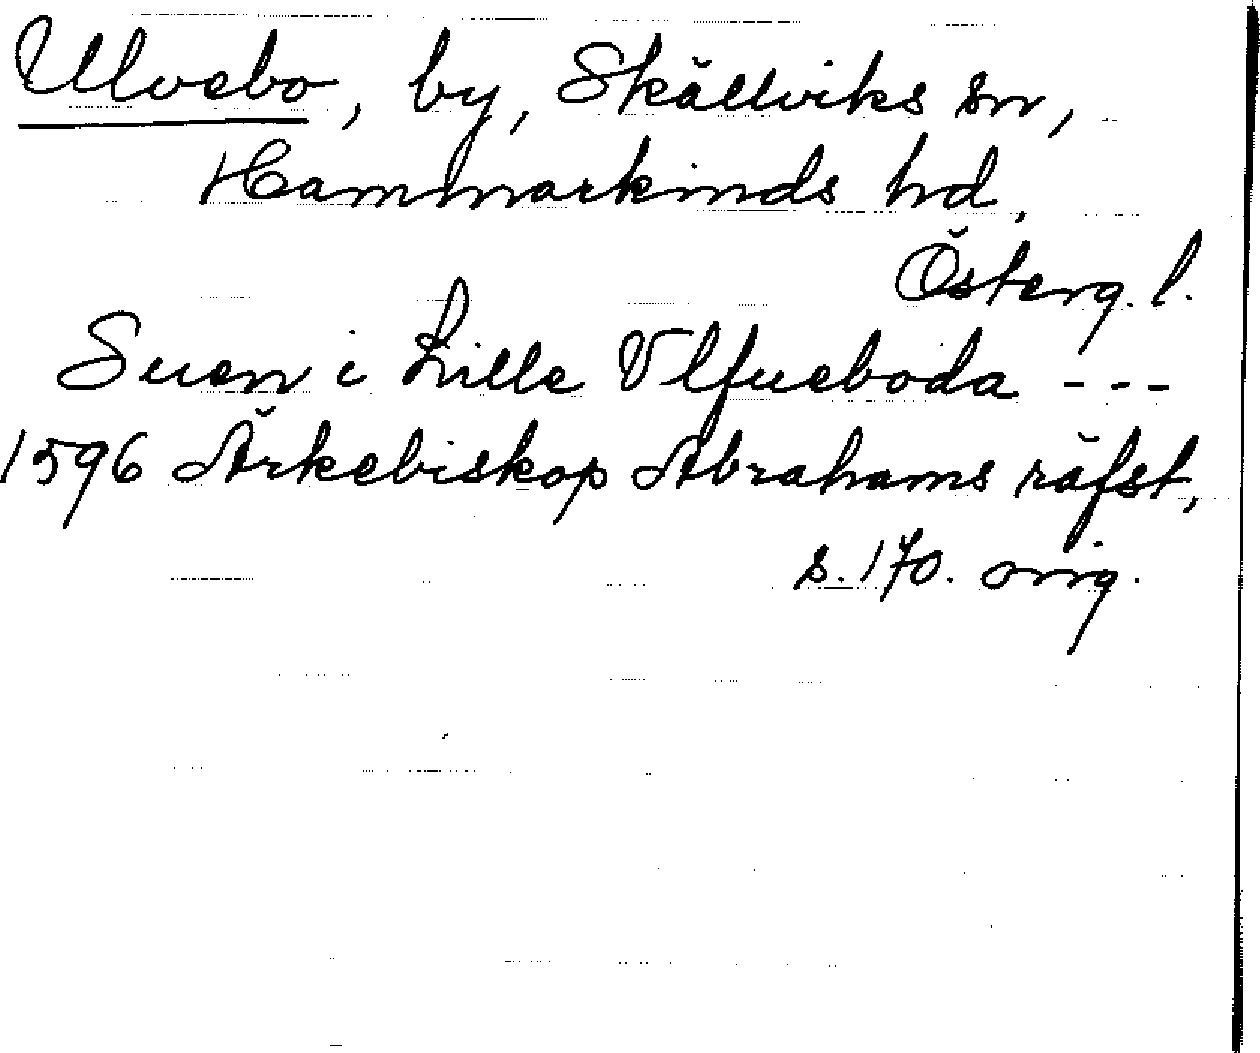 Ulvebo, by, Skällviks sn,
Hammarkinds hd,
Österg. l.
Suen i Lille Vlfueboda ---
1596 Ärkebiskop Abrahams räfst,
s. 170. orig.